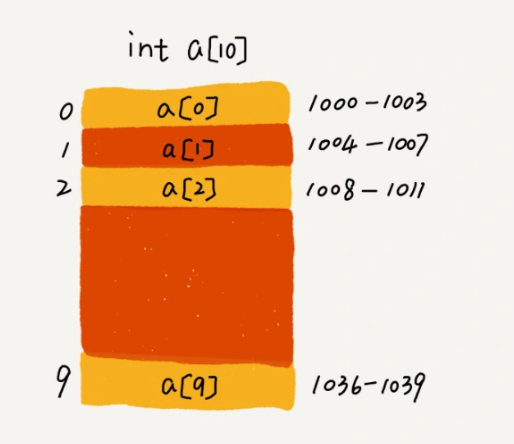 int a[10]
0 a[0] 1000-1003
1 a[1] 1004-1007
2 a[2] 1008-1011
9 a[9] 1036-1039